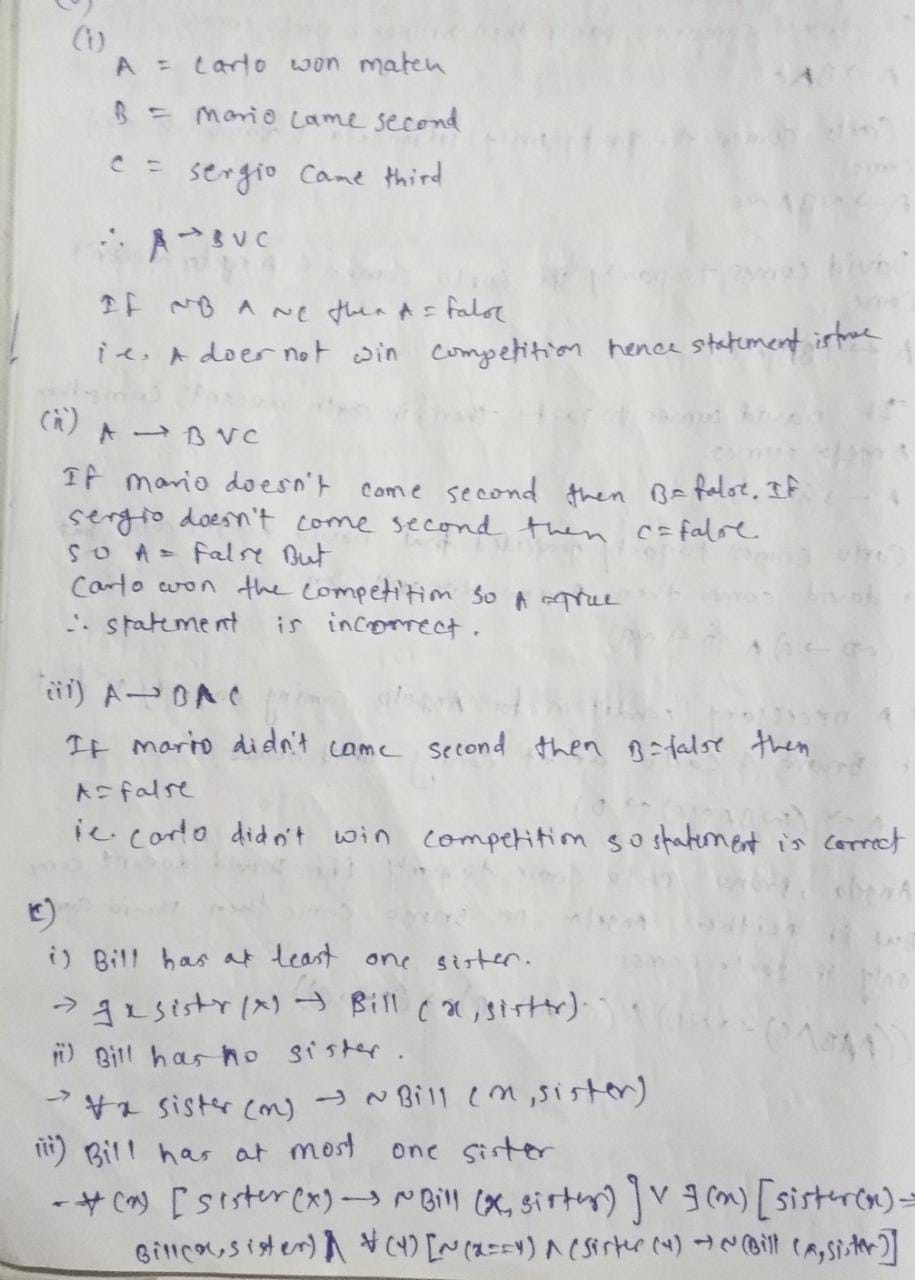 (i)
A = Carlo won match
B = Mario came second
C = Sergio came third
∴ A → B ∨ C
If ~B ∧ ~C then A = false
i.e. A does not win competition hence statement is true
(ii) A → B ∨ C
If mario doesn't come second then B = false. If
sergio doesn't come second then C = false.
so A = false But
Carlo won the competition so A = True
∴ statement is incorrect.
iii) A → B ∧ C
If mario didn't came second then B = false then
A = false
ie. carlo didn't win competition so statement is correct
c)
i) Bill has at least one sister.
→ ∃x sistr(x) → Bill (x, sister)
ii) Bill has no sister.
→ ∀x sister (x) → ~Bill (x, sister)
iii) Bill has at most one sister
- ∀(x) [sister(x) → ~Bill (x, sister)] ∨ ∃(x) [sister(x) →
Bill(x, sister) ∧ ∀(y) [~(x==y) ∧ (sister (y) → ~(Bill (x, sister)]